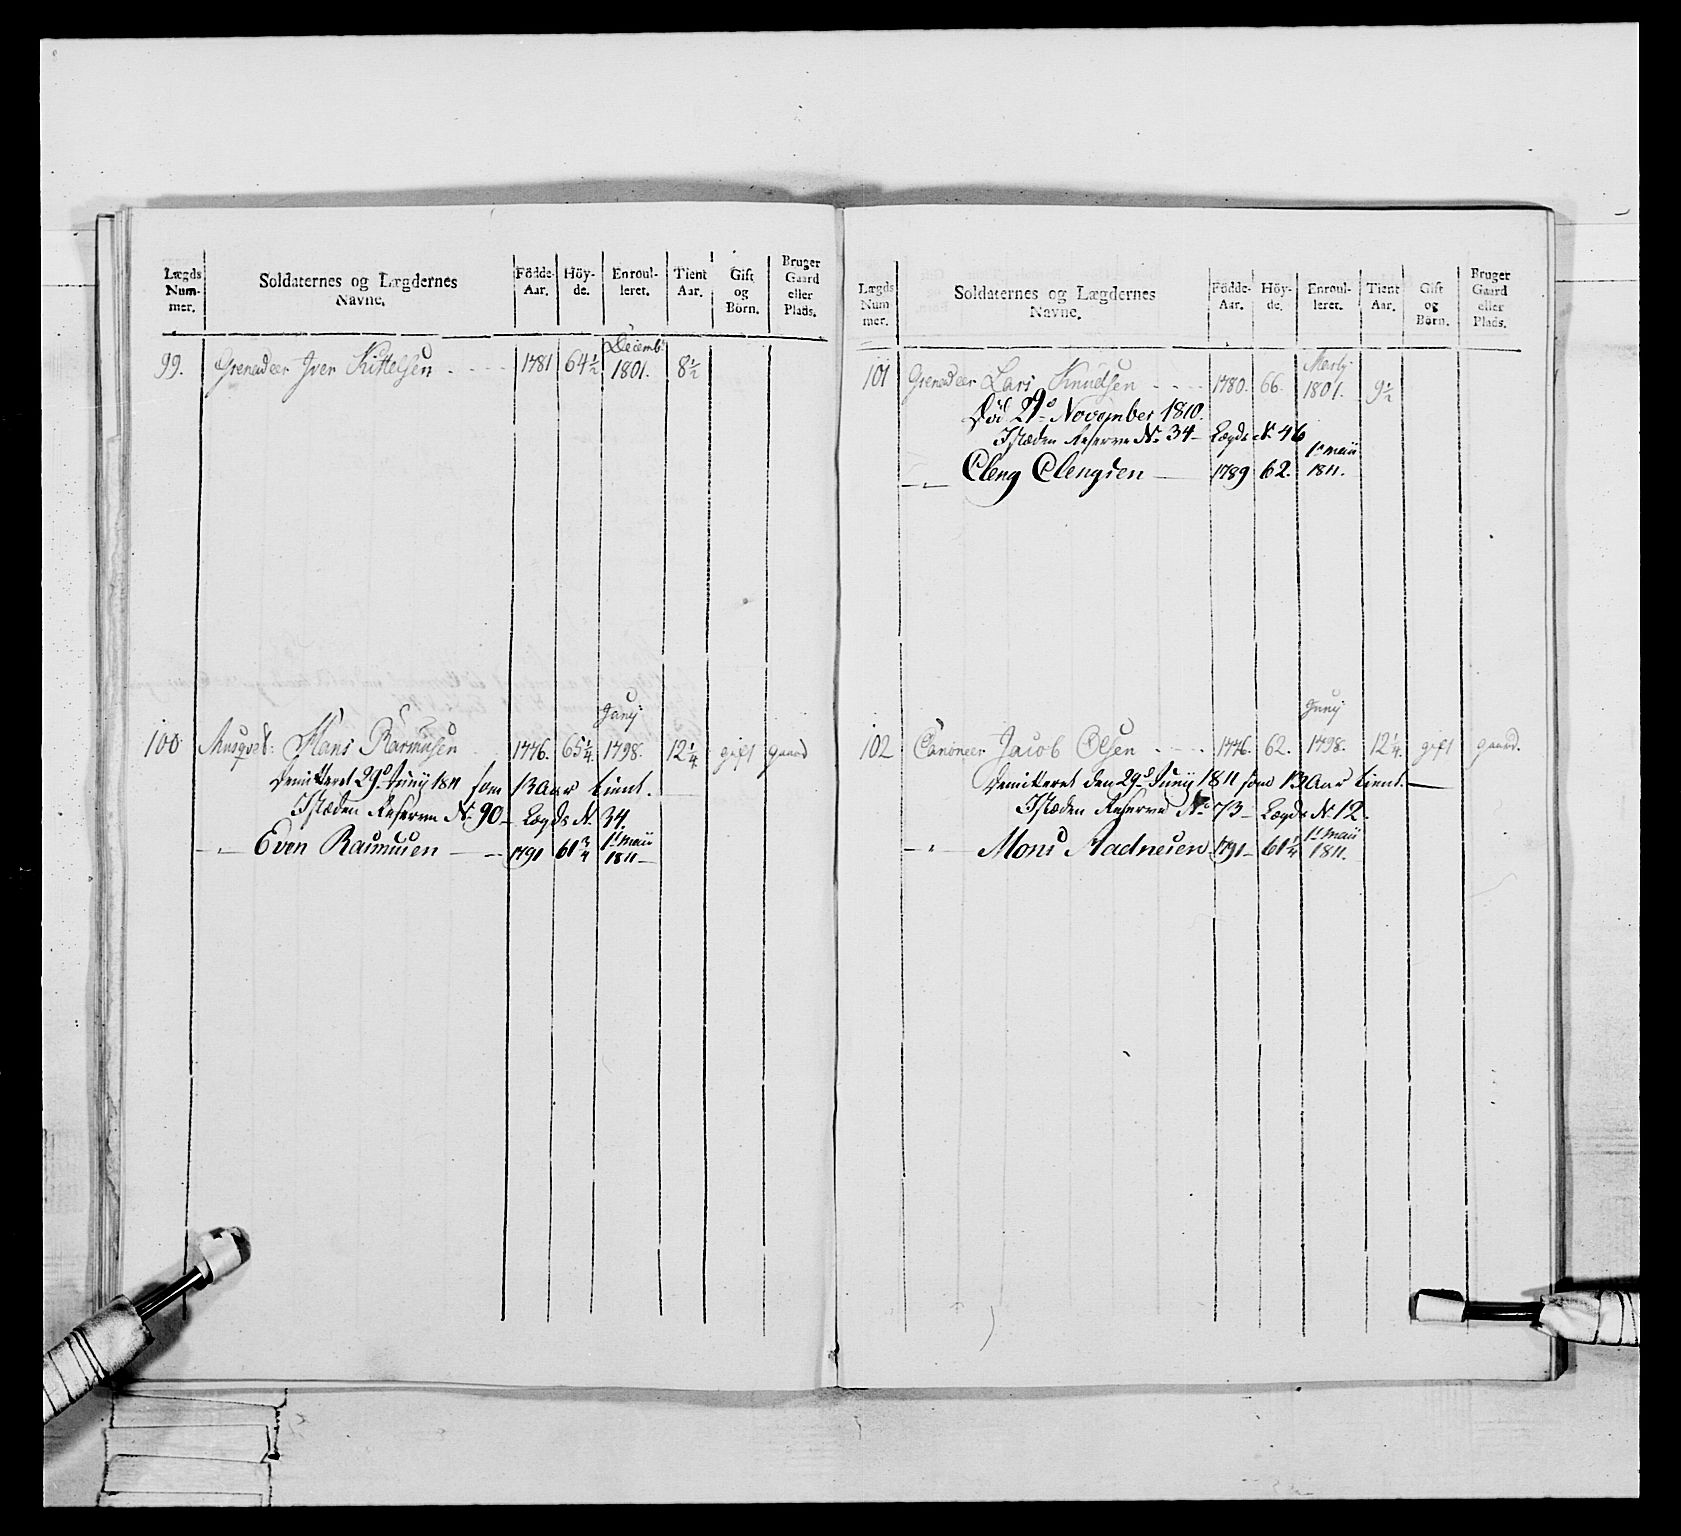 Lægds Num- mer. | Soldaternes og Lægdernes Navne. | Födde- Aar. | Höy- de. | Enroul- leret. | Tient Aar. | Gift og Börn. | Bruger Gaard eller Plads.
Decemb:
99. Grenadeer Iver Kittelsen 1781 64½ 1801. 8½
Junij
100 Musqvet: Hans Rasmusen 1776. 65¼ 1798. 12¼ gift gaard
Demitteret 29d Junij 1811 som 13 Aar tient.
Istæden Reserve No. 90 - Lægds N. 34.
1st maii
-„- Even Rasmusen 1791 61¾ 1811-
Lægds Num mer. | Soldaternes og Lægdernes Navne. | Födde- Aar. | Höy- de. | Enroul- leret. | Tient Aar. | Gift og Börn. | Bruger Gaard eller Plads.
101 Grenadeer Lars Knudsen 1780. 66. 1801. 9½
Död November 1810.
Istæden Reserve No. 34 - Lægds N. 46
1st maii
-„- Cleng Clengsen 1789 62. 1811.
Junij
102 Canoneer Jacob Olsen 1776. 62. 1798. 12¼ gift gaard.
Demitteret den 29d Junij 1811 som 13 Aar tient.
Istæden Reserve No. 73 - Lægds N. 12.
1st maii
-„- Mons Aadnesen 1791- 1811.